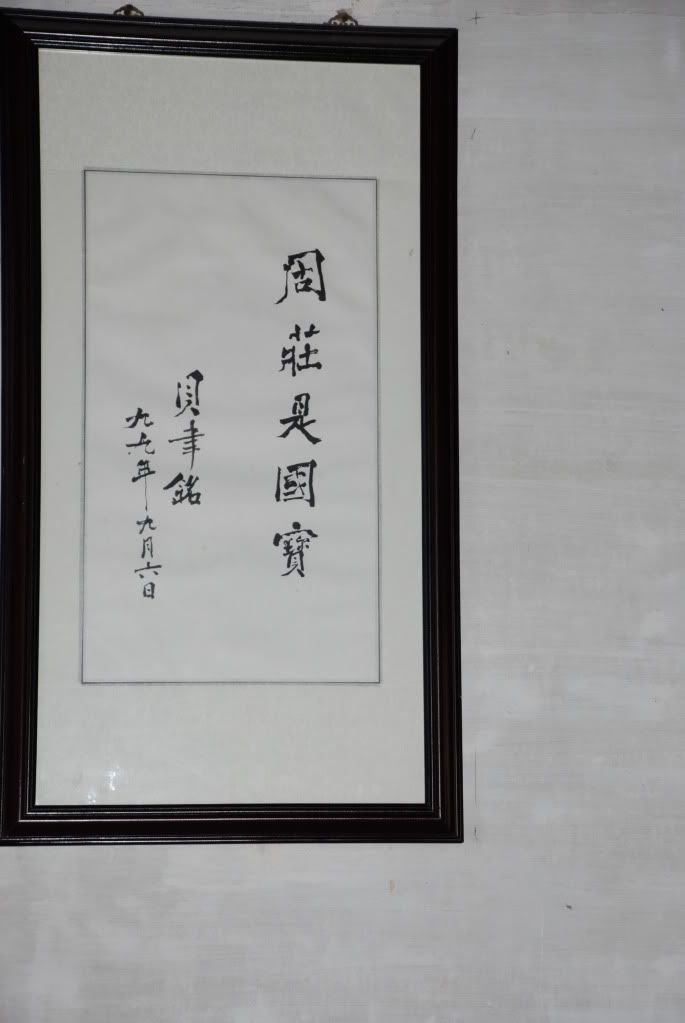 周莊是國寶
貝聿銘
九九年九月六日